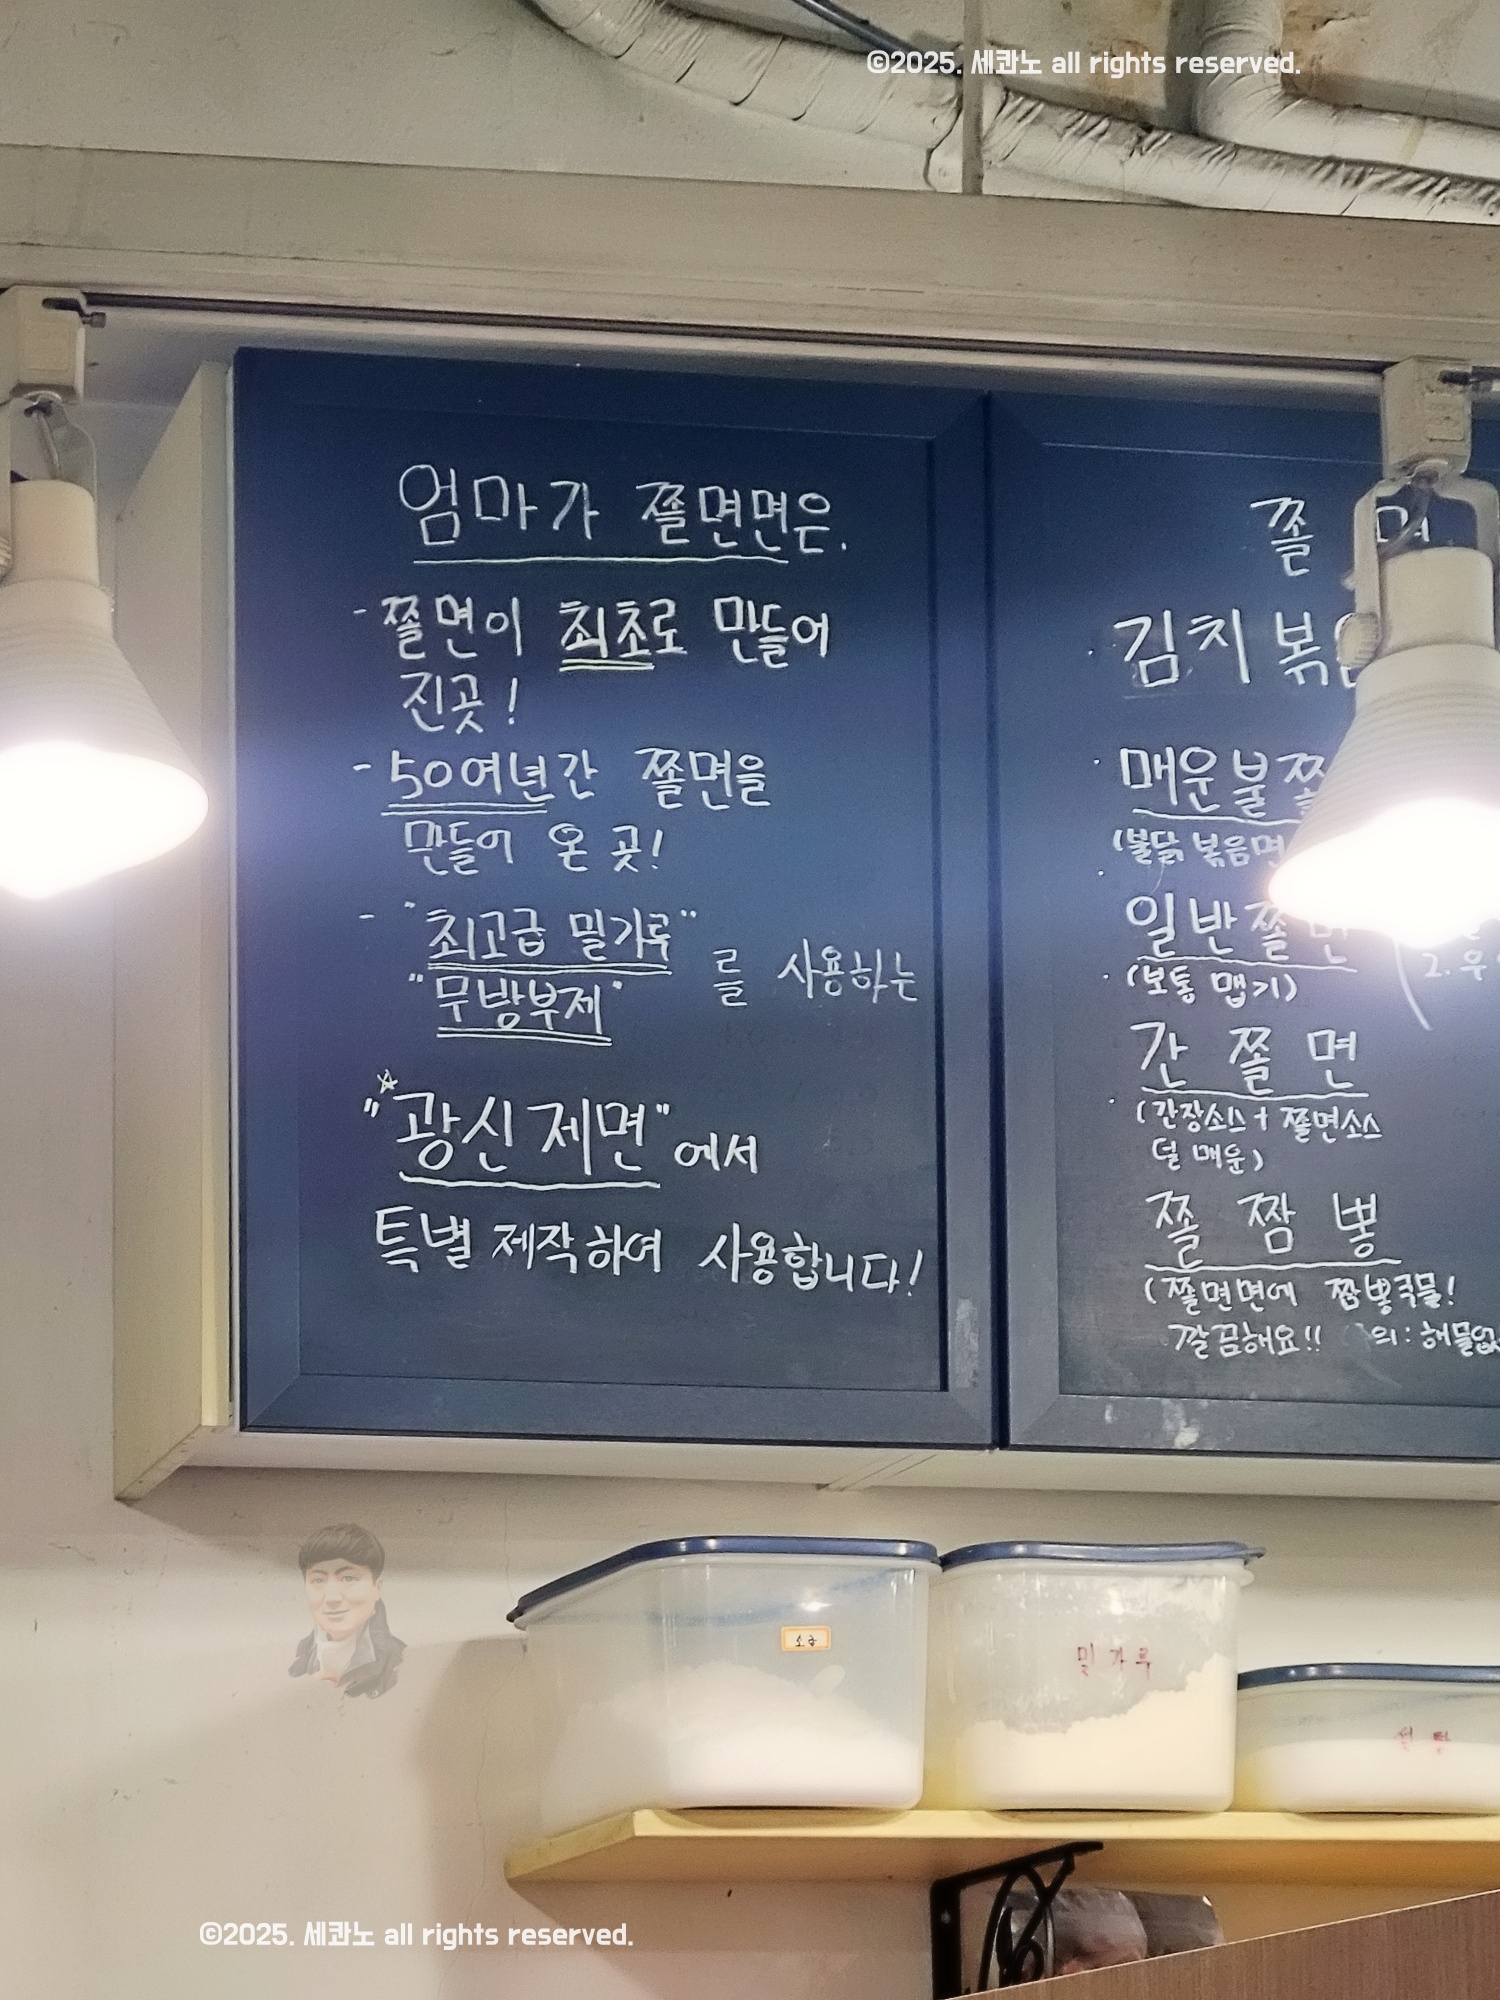 ©2025. 세콰노 all rights reserved.
엄마가 쫄면면은.
- 쫄면이 최초로 만들어
진곳!
- 50여년간 쫄면을
만들어 온 곳!
- "최고급 밀가루"
"무방부제" 를 사용하는
"광신제면"에서
특별 제작하여 사용합니다!
쫄 면
김치볶
매운불쫄
(불닭볶음면
일반쫄면
(보통 맵기)
2. 우
간 쫄 면
(간장소스 + 쫄면소스
덜 매운)
쫄 짬 뽕
(쫄면면에 짬뽕국물!
깔끔해요!! 의: 해물없
소금
밀가루
설탕
©2025. 세콰노 all rights reserved.